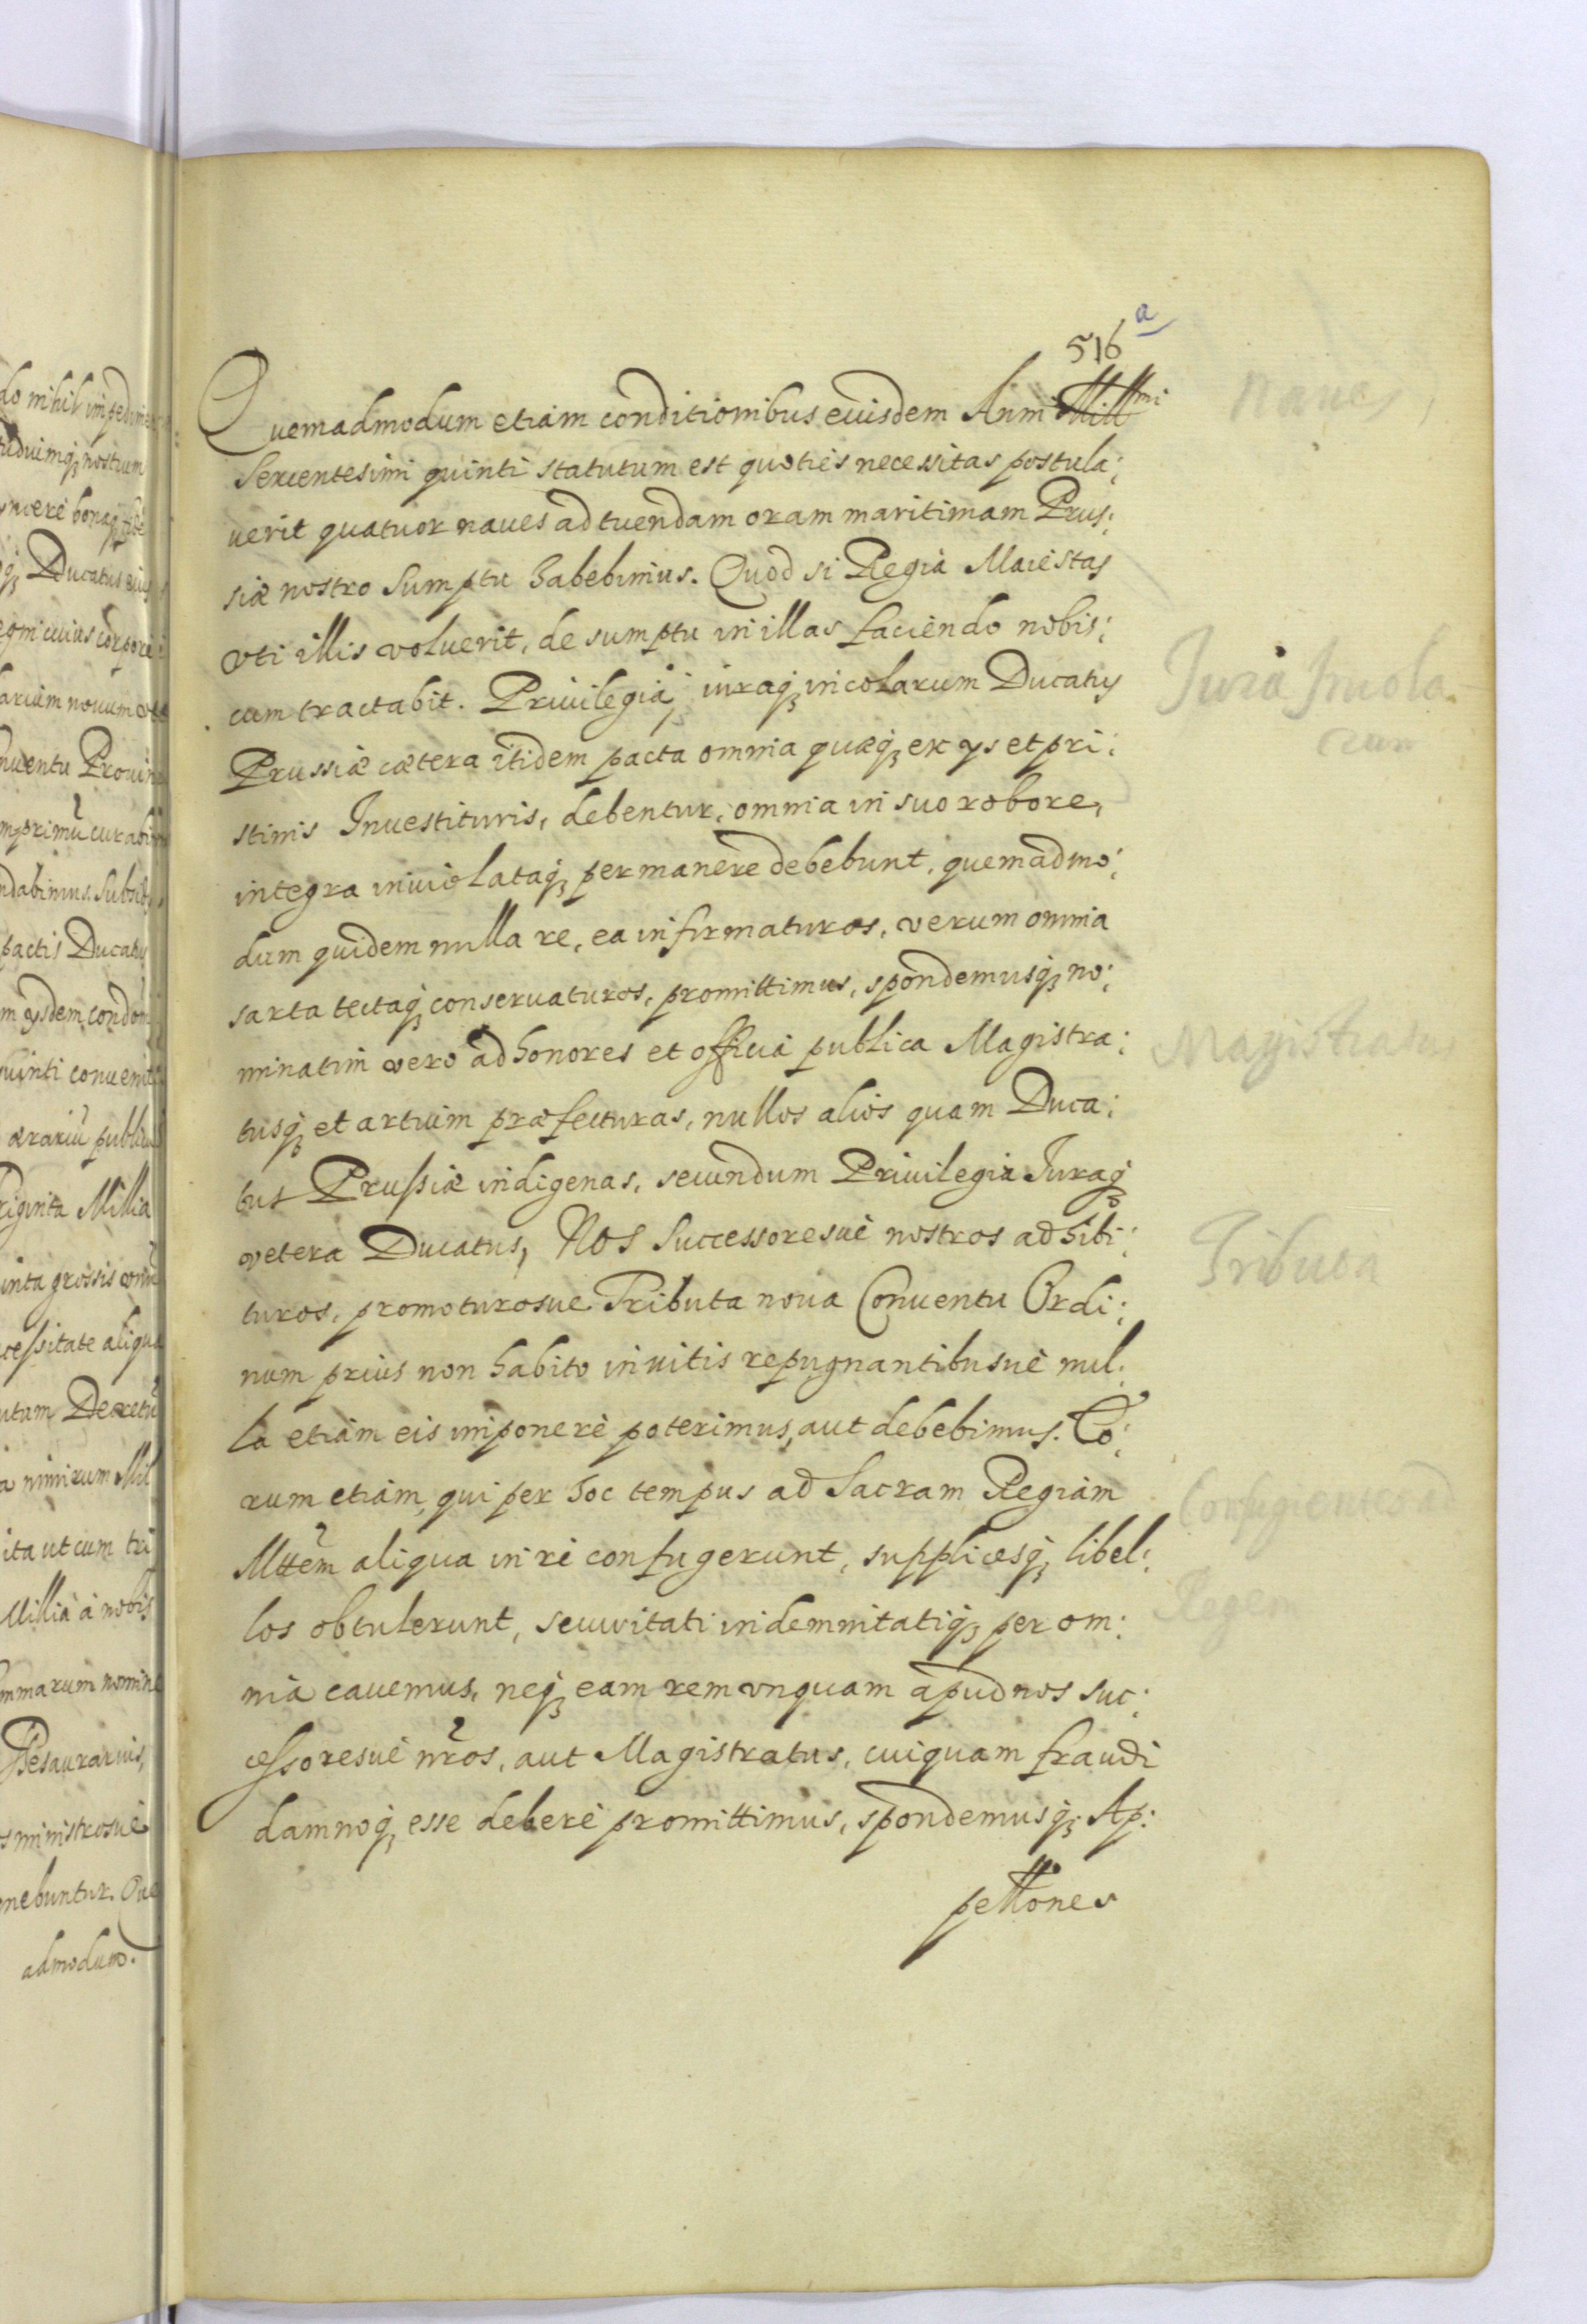 516 a
Quemadmodum etiam conditionibus euisdem Anni Mill mi
Sexcentesimi quinti statutum est quoties necessitas postula:
uerit quatuor naues ad tuendam oram maritimam Prus:
siæ nostro sumptu habebimus. Quod si Regia Maiestas
vti illis voluerit, de sumptu in illas faciendo nobis:
cum tractabit. Priuilegia, iuraq; incolarum Ducatus
Prussiæ cætera itidem pacta omnia quæq; ex ys et pri:
stinis Inuestituris, debentur, omnia in suo robore,
integra inuiolataq; permanere debebunt, quemadmo:
dum quidem nulla re, ea infirmaturos, verum omnia
sarta tectaq; conseruaturos, promittimus, spondemusq; no:
minatim vero ad honores et officia publica Magistra:
tusq; et artium præfecturas, nullos alios quam Duca:
tus Prussiæ indigenas, secundum Priuilegia Iuraq;
vetera Ducatus, Nos Successoresue nostros adhibi:
turos, promoturosue Tributa noua Conuentu Ordi:
num prius non habito inuitis repugnantibusue nul:
la etiam eis imponere poterimus, aut debebimus. Eo:
rum etiam, qui per hoc tempus ad Sacram Regiam
Mttem aliqua in re confugerunt, supplicesq; libel:
los obtulerunt, securitati indemnitatiq; per om:
nia cauemus, neq; eam rem vnquam apud nos suc:
cessoresue nros, aut Magistratus, cuiquam fraudi
damnoq; esse debere promittimus, spondemusq; Ap:
pellones
Naues
Iura Incola
rum
Magistratus
Tributa
Confugientes ad
Regem
do nihil impedime
nostrum
Ducatus eius
egni cuius corpori
arium nouum
nuentu Prouin
primu curabi
ndabimus. Subsid
pactis Ducatus
m ysdem condon
uinti conuenit
ærariu publicu
riginta Millia
inta grossis
cessitate aliqua
utam Decretu
a nimirum Mil
ita ut cum tri
Millia a nobis
mmarum nomine
Thesaurarius,
s ministrosue
nebuntur. Que
admodum.